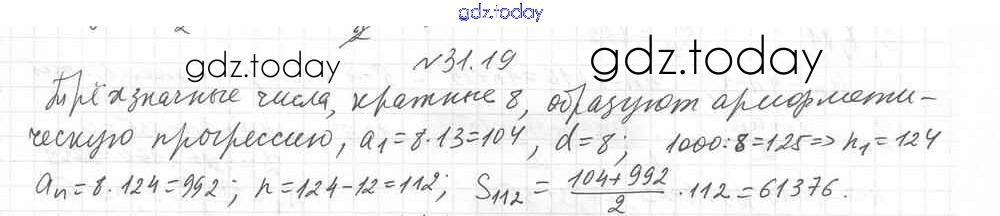 gdz.today
№31.19
gdz.today gdz.today
Трёхзначные числа, кратные 8, образуют арифмети-
ческую прогрессию, a₁=8·13=104, d=8; 1000:8=125=>n₁=124
aₙ=8·124=992; n=124-12=112; S₁₁₂ = (104+992)/2 ·112=61376.